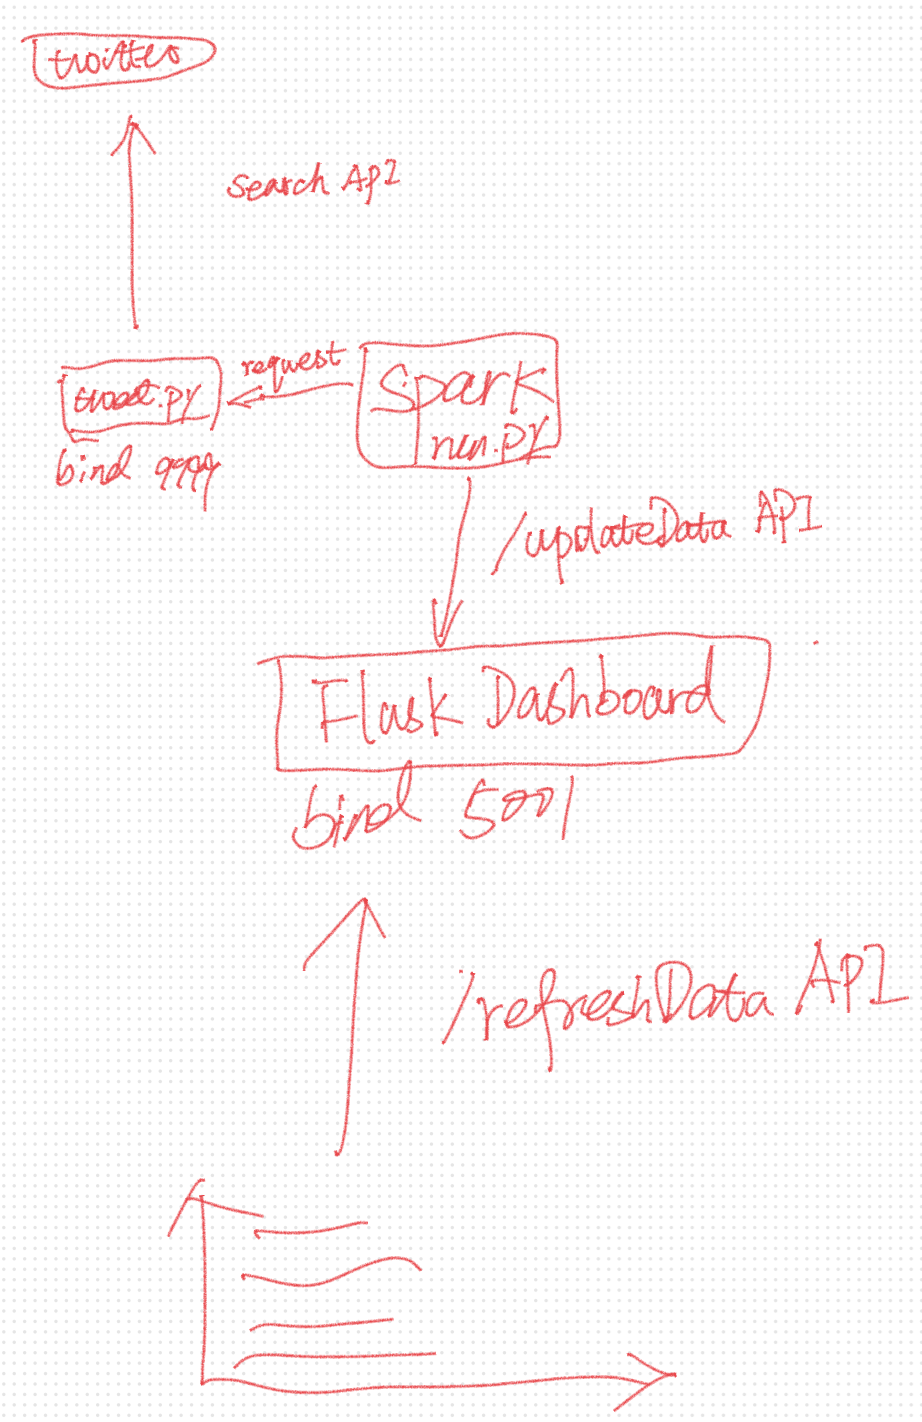 twitter
search API
tweet.py
request
Spark
run.py
bind 9999
/updateData API
Flask Dashboard
bind 5001
/refreshData API